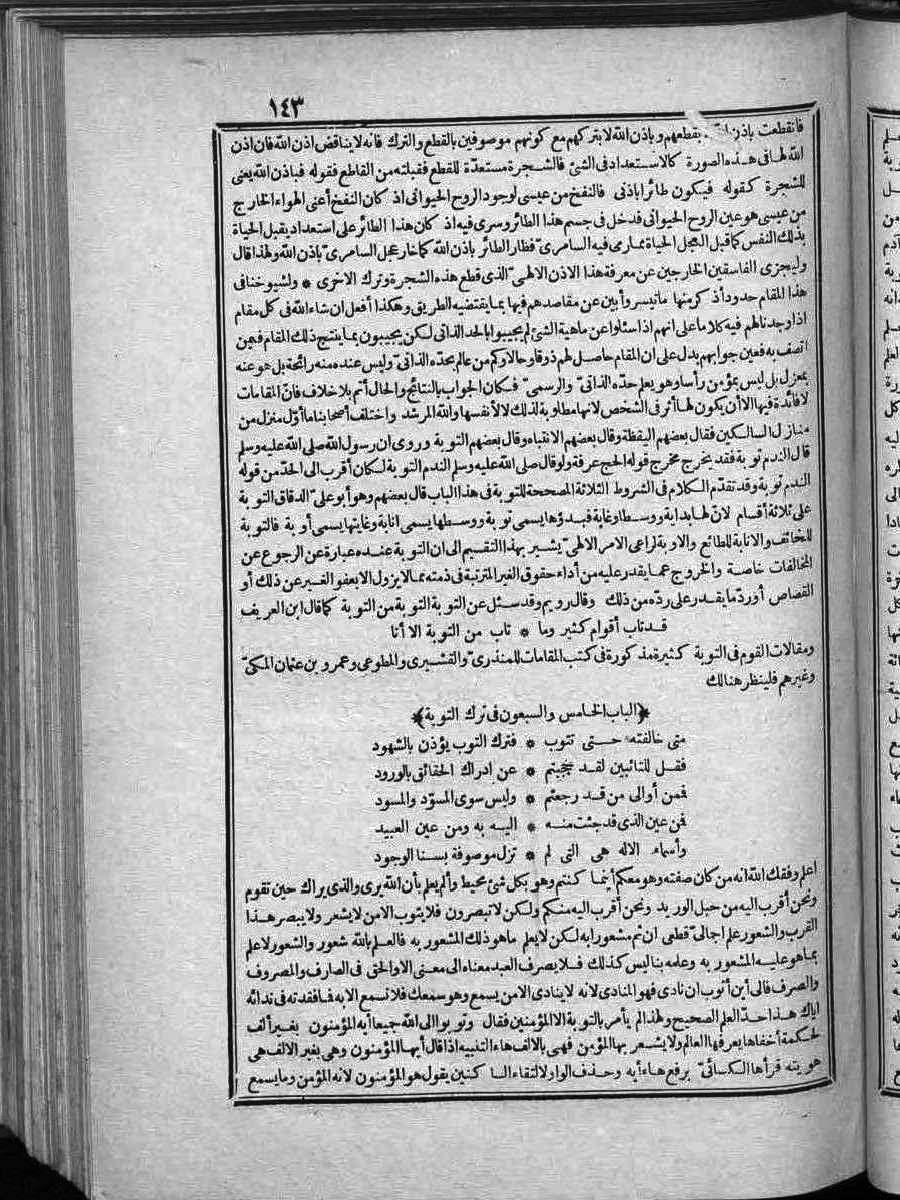 ١٤٣
فانقطعت باذن بقطعهم وباذن الله لا بتركهم مع كونهم موصوفين بالقطع والترك فانه لا يناقض اذن الله فان اذن
الله لها فى هذه الصورة كالاستعداد فى الشئ فالشجرة مستعدّة للقطع فقبلته من القاطع فقوله فباذن الله يعنى
للشجرة كقوله فيكون طائرا باذنى فالنفخ من عيسى لوجود الروح الحيوانى اذ كان النفخ أعنى الهواء الخارج
من عيسى هو عين الروح الحيوانى فدخل فى جسم هذا الطائر وسرى فيه اذ كان هذا الطائر على استعداد يقبل الحياة
بذلك النفس كما قبل العجل الحياة بما رمى فيه السامرىّ فطار الطائر باذن الله كما خار عجل السامرىّ باذن الله ولهذا قال
وليجزى الفاسقين الخارجين عن معرفة هذا الاذن الالهىّ الذى قطع هذه الشجرة وترك الاخرى * ولشيوخنا فى
هذا المقام حدود أذكر منها ما تيسر وأبين عن مقاصدهم فيها بما يقتضيه الطريق وهكذا أفعل ان شاء الله فى كل مقام
اذا وجدنا لهم فيه كلاما على انهم اذا سئلوا عن ماهية الشئ لم يجيبوا بالحد الذاتى لكن يجيبون بما ينتج ذلك المقام فيمن
اتصف به فعين جوابهم يدل على ان المقام حاصل لهم ذوقا وحالا وكم من عالم بحدّه الذاتىّ وليس عنده منه رائحة بل هو عنه
بمعزل بل ليس بمؤمن رأسا وهو يعلم حدّه الذاتىّ والرسمىّ فكان الجواب بالنتائج والحال أتم بلا خلاف فانّ المقامات
لا فائدة فيها الا أن يكون لها أثر فى الشخص لانها مطلوبة لذلك لا لأنفسها والله المرشد واختلف أصحابنا ما أوّل منزل من
منازل السالكين فقال بعضهم اليقظة وقال بعضهم الانتباه وقال بعضهم التوبة وروى ان رسول الله صلى الله عليه وسلم
قال الندم توبة فقد يخرج مخرج قوله الحج عرفة ولو قال صلى الله عليه وسلم الندم التوبة لكان أقرب الى الحدّ من قوله
الندم توبة وقد تقدّم الكلام فى الشروط الثلاثة المصححة للتوبة فى هذا الباب قال بعضهم وهو أبو علىّ الدقاق التوبة
على ثلاثة أقسام لانّ لها بداية ووسطا وغاية فبدؤها يسمى توبة ووسطها يسمى انابة وغايتها يسمى أوبة فالتوبة
للخائف والانابة للطائع والاوبة لراعى الامر الالهىّ يشير بهذا التقسيم الى ان التوبة عنده عبارة عن الرجوع عن
المخالفات خاصة والخروج عما يقدر عليه من أداء حقوق الغير المترتبة فى ذمته مما لا يزول الا بعفو الغير عن ذلك أو
القصاص أو ردّ ما يقدر على ردّه من ذلك وقال رويم وقد سئل عن التوبة التوبة من التوبة كما قال ابن العريف
قد تاب أقوام كثير وما * تاب من التوبة الا أنا
ومقالات القوم فى التوبة كثيرة مذكورة فى كتب المقامات للمنذرىّ والقشيرى والمطوعى وعمرو بن عثمان المكىّ
وغيرهم فلينظر هنالك
﴿الباب الخامس والسبعون فى ترك التوبة﴾
متى خالفته حتى تتوب * فترك التوب يؤذن بالشهود
فقل للتائبين لقد حجبتم * عن ادراك الحقائق بالورود
فمن أوالى من قد رجعتم * وليس سوى المسوّد والمسود
فمن عين الذى قد جئت منه * اليه به ومن عين العبيد
وأسماء الاله هى التى لم * تزل موصوفة بسنا الوجود
اعلم وفقك الله انه من كان صفته وهو معكم أينما كنتم وهو بكل شئ محيط وألم يعلم بأن الله يرى والذى يراك حين تقوم
ونحن أقرب اليه من حبل الوريد ونحن أقرب اليه منكم ولكن لا تبصرون فلا يتوب الا من لا يشعر ولا يبصر هذا
القرب والشعور علم اجالىّ قطعى ان ثم مشعورا به لكن لا يعلم ما هو ذلك المشعور به فالعلم بالله شعور والشعور لا علم
بما هو عليه المشعور به وعلمه بنا ليس كذلك فلا يصرف العبد معناه الى معنى الا والحق فى الصارف والمصروف
والصرف فالى أين أتوب ان نادى فهو المنادى لانه لا ينادى الا من يسمع وهو سمعك فلا تسمع الا به فما فقدته فى ندائه
اياك هذا حدّ العلم الصحيح ولهذا لم يأمر بالتوبة الا المؤمنين فقال وتوبوا الى الله جميعا أيه المؤمنون بغير ألف
لحكمة أخفاها يعرفها العالم ولا يشعر بها المؤمن فهى بالالف هاء التنبيه اذا قال أيها المؤمنون وهى بغير الالف هى
هويته قرأها الكسائىّ برفع هاء أيه وحذف الواو لالتقاء الساكنين يقول هو المؤمنون لانه المؤمن وما يسمع